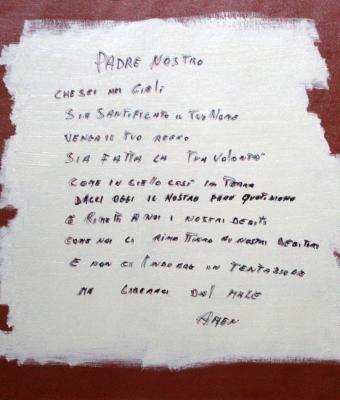 PADRE NOSTRO
CHE SEI NEI CIELI
SIA SANTIFICATO IL TUO NOME
VENGA IL TUO REGNO
SIA FATTA LA TUA VOLONTÀ
COME IN CIELLO COSÌ IN TERRA
DACCI OGGI IL NOSTRO PANE QUOTIDIANO
E RIMETTI A NOI I NOSTRI DEBITI
COME NOI LI RIMETTIAMO AI NOSTRI DEBITORI
E NON CI INDURRE IN TENTAZIONE
MA LIBERACI DAL MALE
AMEN